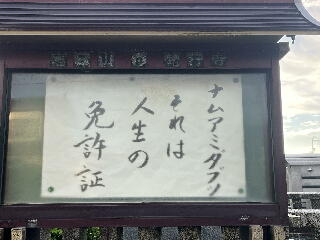 ナムアミダブツ
それは
人生の
免許証